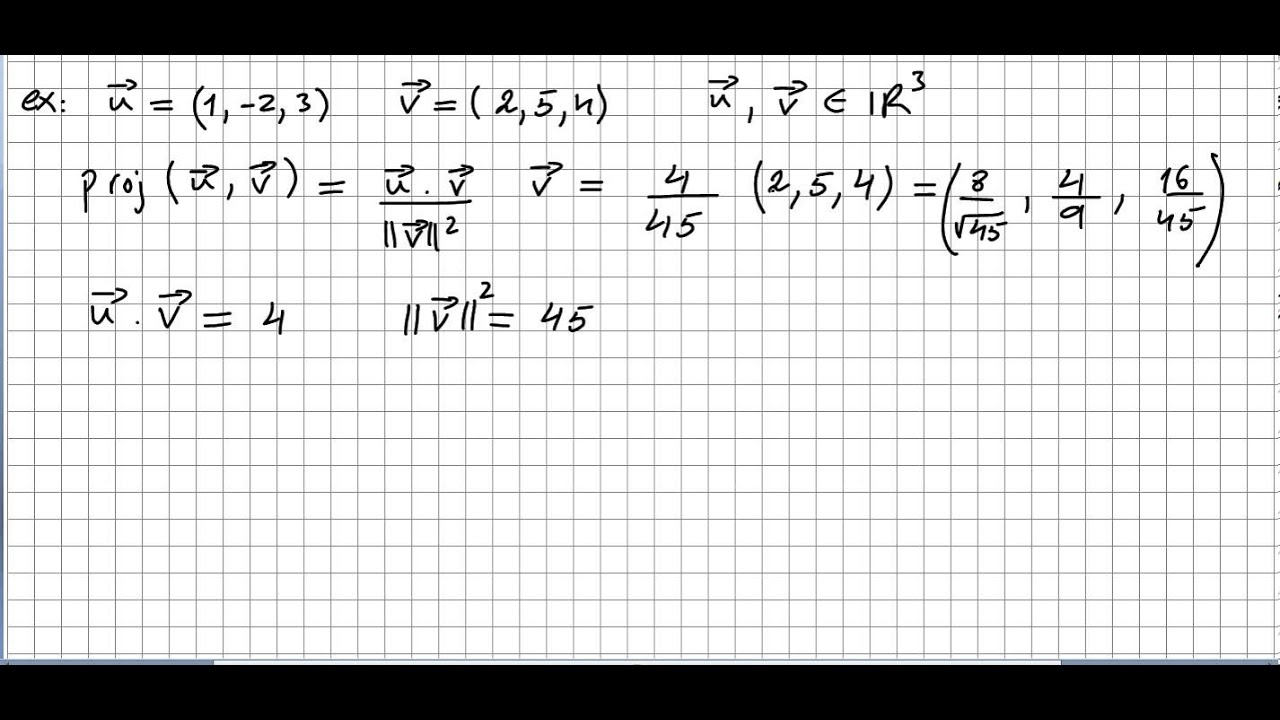 ex: u⃗ = (1, -2, 3) v⃗ = (2, 5, 4) u⃗, v⃗ ∈ ℝ³
proj(u⃗, v⃗) = (u⃗ . v⃗)/||v⃗||² v⃗ = 4/45 (2, 5, 4) = (8/√45, 4/9, 16/45)
u⃗ . v⃗ = 4 ||v⃗||² = 45